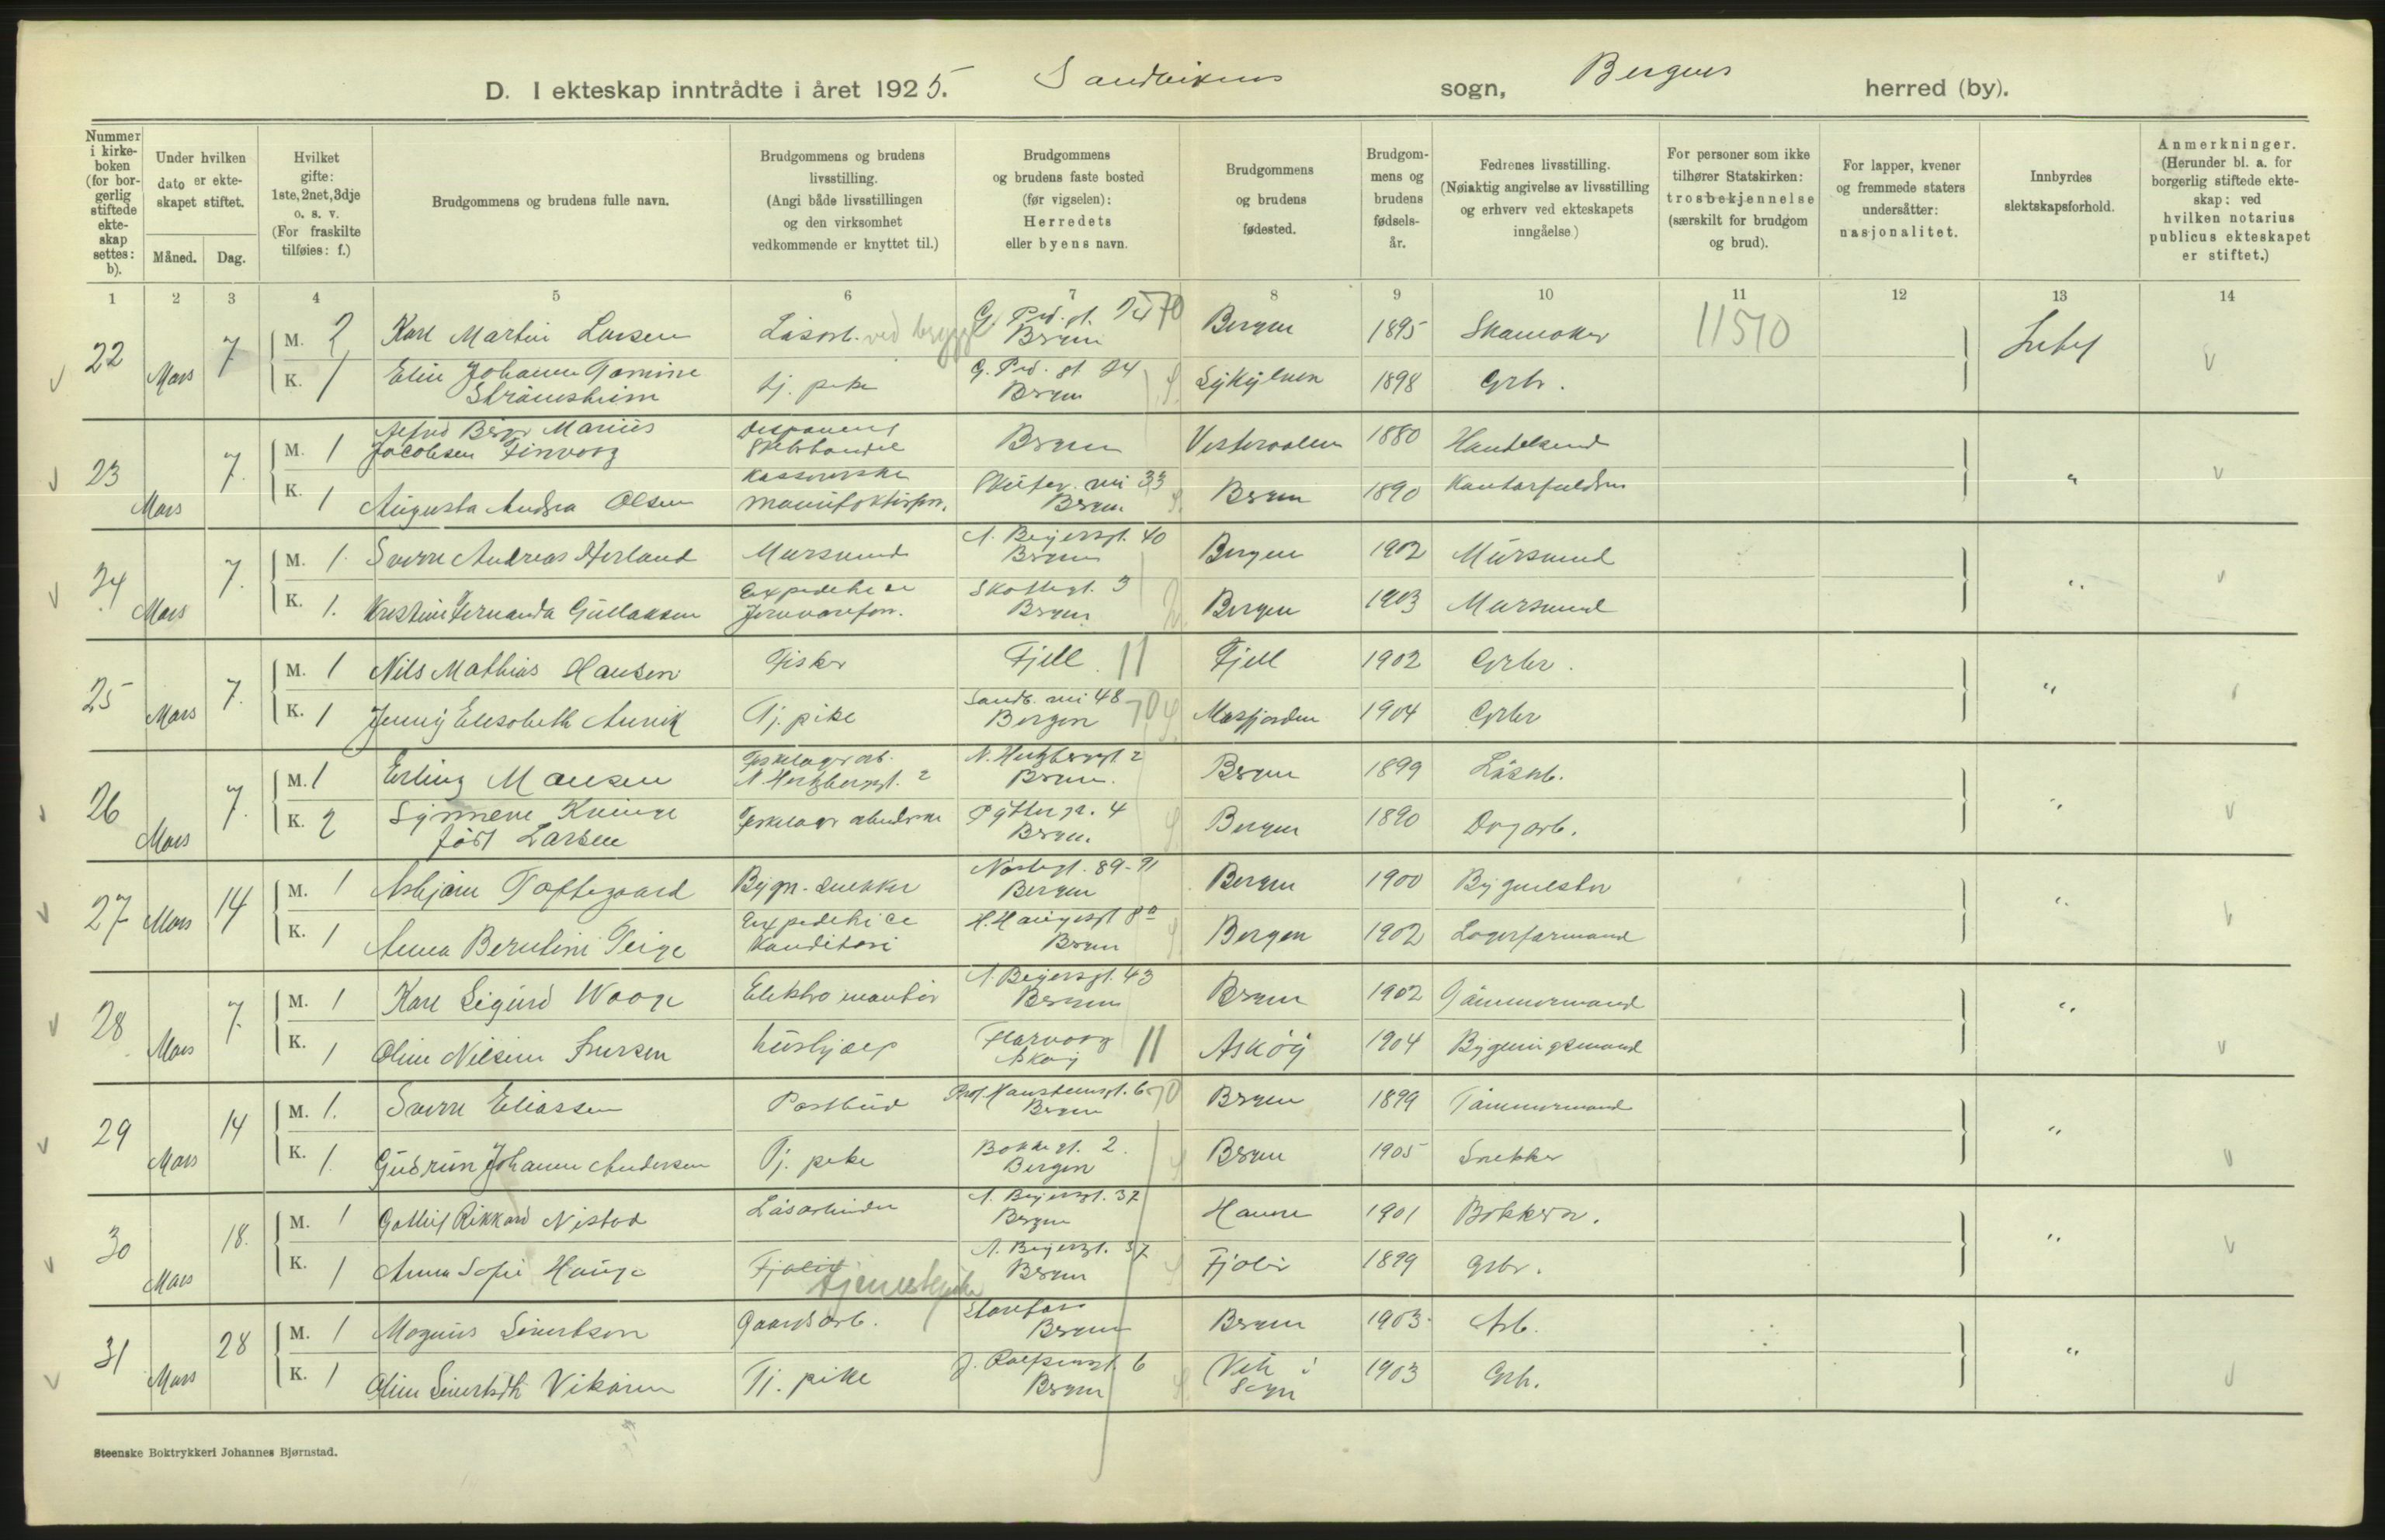 D. I ekteskap inntrådte i året 1925. Sandvikens sogn, Bergens herred (by).
Nummer i kirkeboken (for borgerlig stiftede ekteskap settes: b).
Under hvilken dato er ekteskapet stiftet.
Måned. Dag.
Hvilket gifte: 1ste, 2net, 3dje o. s. v. (For fraskilte tilføies: f.)
Brudgommens og brudens fulle navn.
Brudgommens og brudens livsstilling. (Angi både livsstillingen og den virksomhet vedkommende er knyttet til.)
Brudgommens og brudens faste bosted (før vigselen): Herredets eller byens navn.
Brudgommens og brudens fødested.
Brudgommens og brudens fødselsår.
Fedrenes livsstilling. (Nøiaktig angivelse av livsstilling og erhverv ved ekteskapets inngåelse.)
For personer som ikke tilhører Statskirken: trosbekjennelse (særskilt for brudgom og brud).
For lapper, kvener og fremmede staters undersåtter: nasjonalitet.
Innbyrdes slektskapsforhold.
Anmerkninger. (Herunder bl. a. for borgerlig stiftede ekteskap: ved hvilken notarius publicus ekteskapet er stiftet.)
1 2 3 4 5 6 7 8 9 10 11 12 13 14
22 Mars 7 M. 2 Karl Martin Larsen Løsarb. ved brygge Bergen Bergen 1895 Skomaker 11570 Intet
K. 1 Elin Johanne Tomine Strømsheim tj. pike Bergen Sykylven 1898 Grbr.
23 Mars 7. M. 1 Marius Jacobsen Finvoog Bergen Vesteraalen 1880 Handelsmd
K. 1 Augusta Andrea Olsen Kassererske manufakturforr. 33 Bergen Bergen 1890 "
24 Mars 7. M. 1. Sverre Andreas Herland Mursvend N. Beyersgt. 40 Bergen Bergen 1902 Mursvend
K. 1. Kristine Fernanda Gullaksen Expeditrice Jernvareforr. Skottegt. 3 Bergen Bergen 1903 Mursvend "
25 Mars 7. M. 1 Nils Mathias Hansen Fisker Fjell 11 Fjell 1902 Grbr.
K. 1 Jenny Elisabeth Andvik Tj. pike Sandv. vei 48 Bergen 70 Masfjorden 1904 Grbr "
26 Mars 7. M. 1 Erling Monsen N. Hertzbergsgt. 2 N. Hertzbergsgt. 2 Bergen. Bergen 1899 Løsarb.
K. 2 Synneve Kvinge født Larsen Bergen. Bergen 1890 Dagarb. "
27 Mars 14 M. 1 Asbjørn Toftegaard Bygn. snekker Nøstegt. 89-91 Bergen Bergen 1900 Bygmester
K. 1 Anna Berntine Teige Expeditrice Konditori H. Haugesgt 8a Bergen Bergen 1902 Lagerformand "
28 Mars 7. M. 1 Karl Sigurd Waage Elektro montør N. Beyersgt. 43 Bergen Bergen 1902 Tømmermand
K. 1 Oline Nilsine Iversen hushjælp Florvaag Askøy 11 Askøy 1904 Bygningsmand "
29 Mars 14 M. 1. Sverre Eliassen Postbud Prof. Hansteensgt. 6 70 Bergen Bergen 1899 Tømmermand
K. 1. Gudrun Johanne Andersen Tj. pike 2. Bergen Bergen 1905 Snekker "
30 Mars 18. M. 1 Gotlief Rikkard Nistad Løsarbeider N. Beyersgt. 37 Bergen Hamre 1901 Bøkker.
K. 1 Anna Sofie Hauge tjenestepike N. Beyersgt. 37 Bergen Fjaler 1899 Grbr. "
31 Mars 28 M. 1 Magnus Sivertsen Gaardsarb. Bergen Bergen 1903 Arb.
K. 1 Oline Sivertsdtr Vikøren Tj. pike J. Rolfsensgt. 6 Bergen Vik i Sogn 1903 Grbr. "
Steenske Boktrykkeri Johannes Bjørnstad.